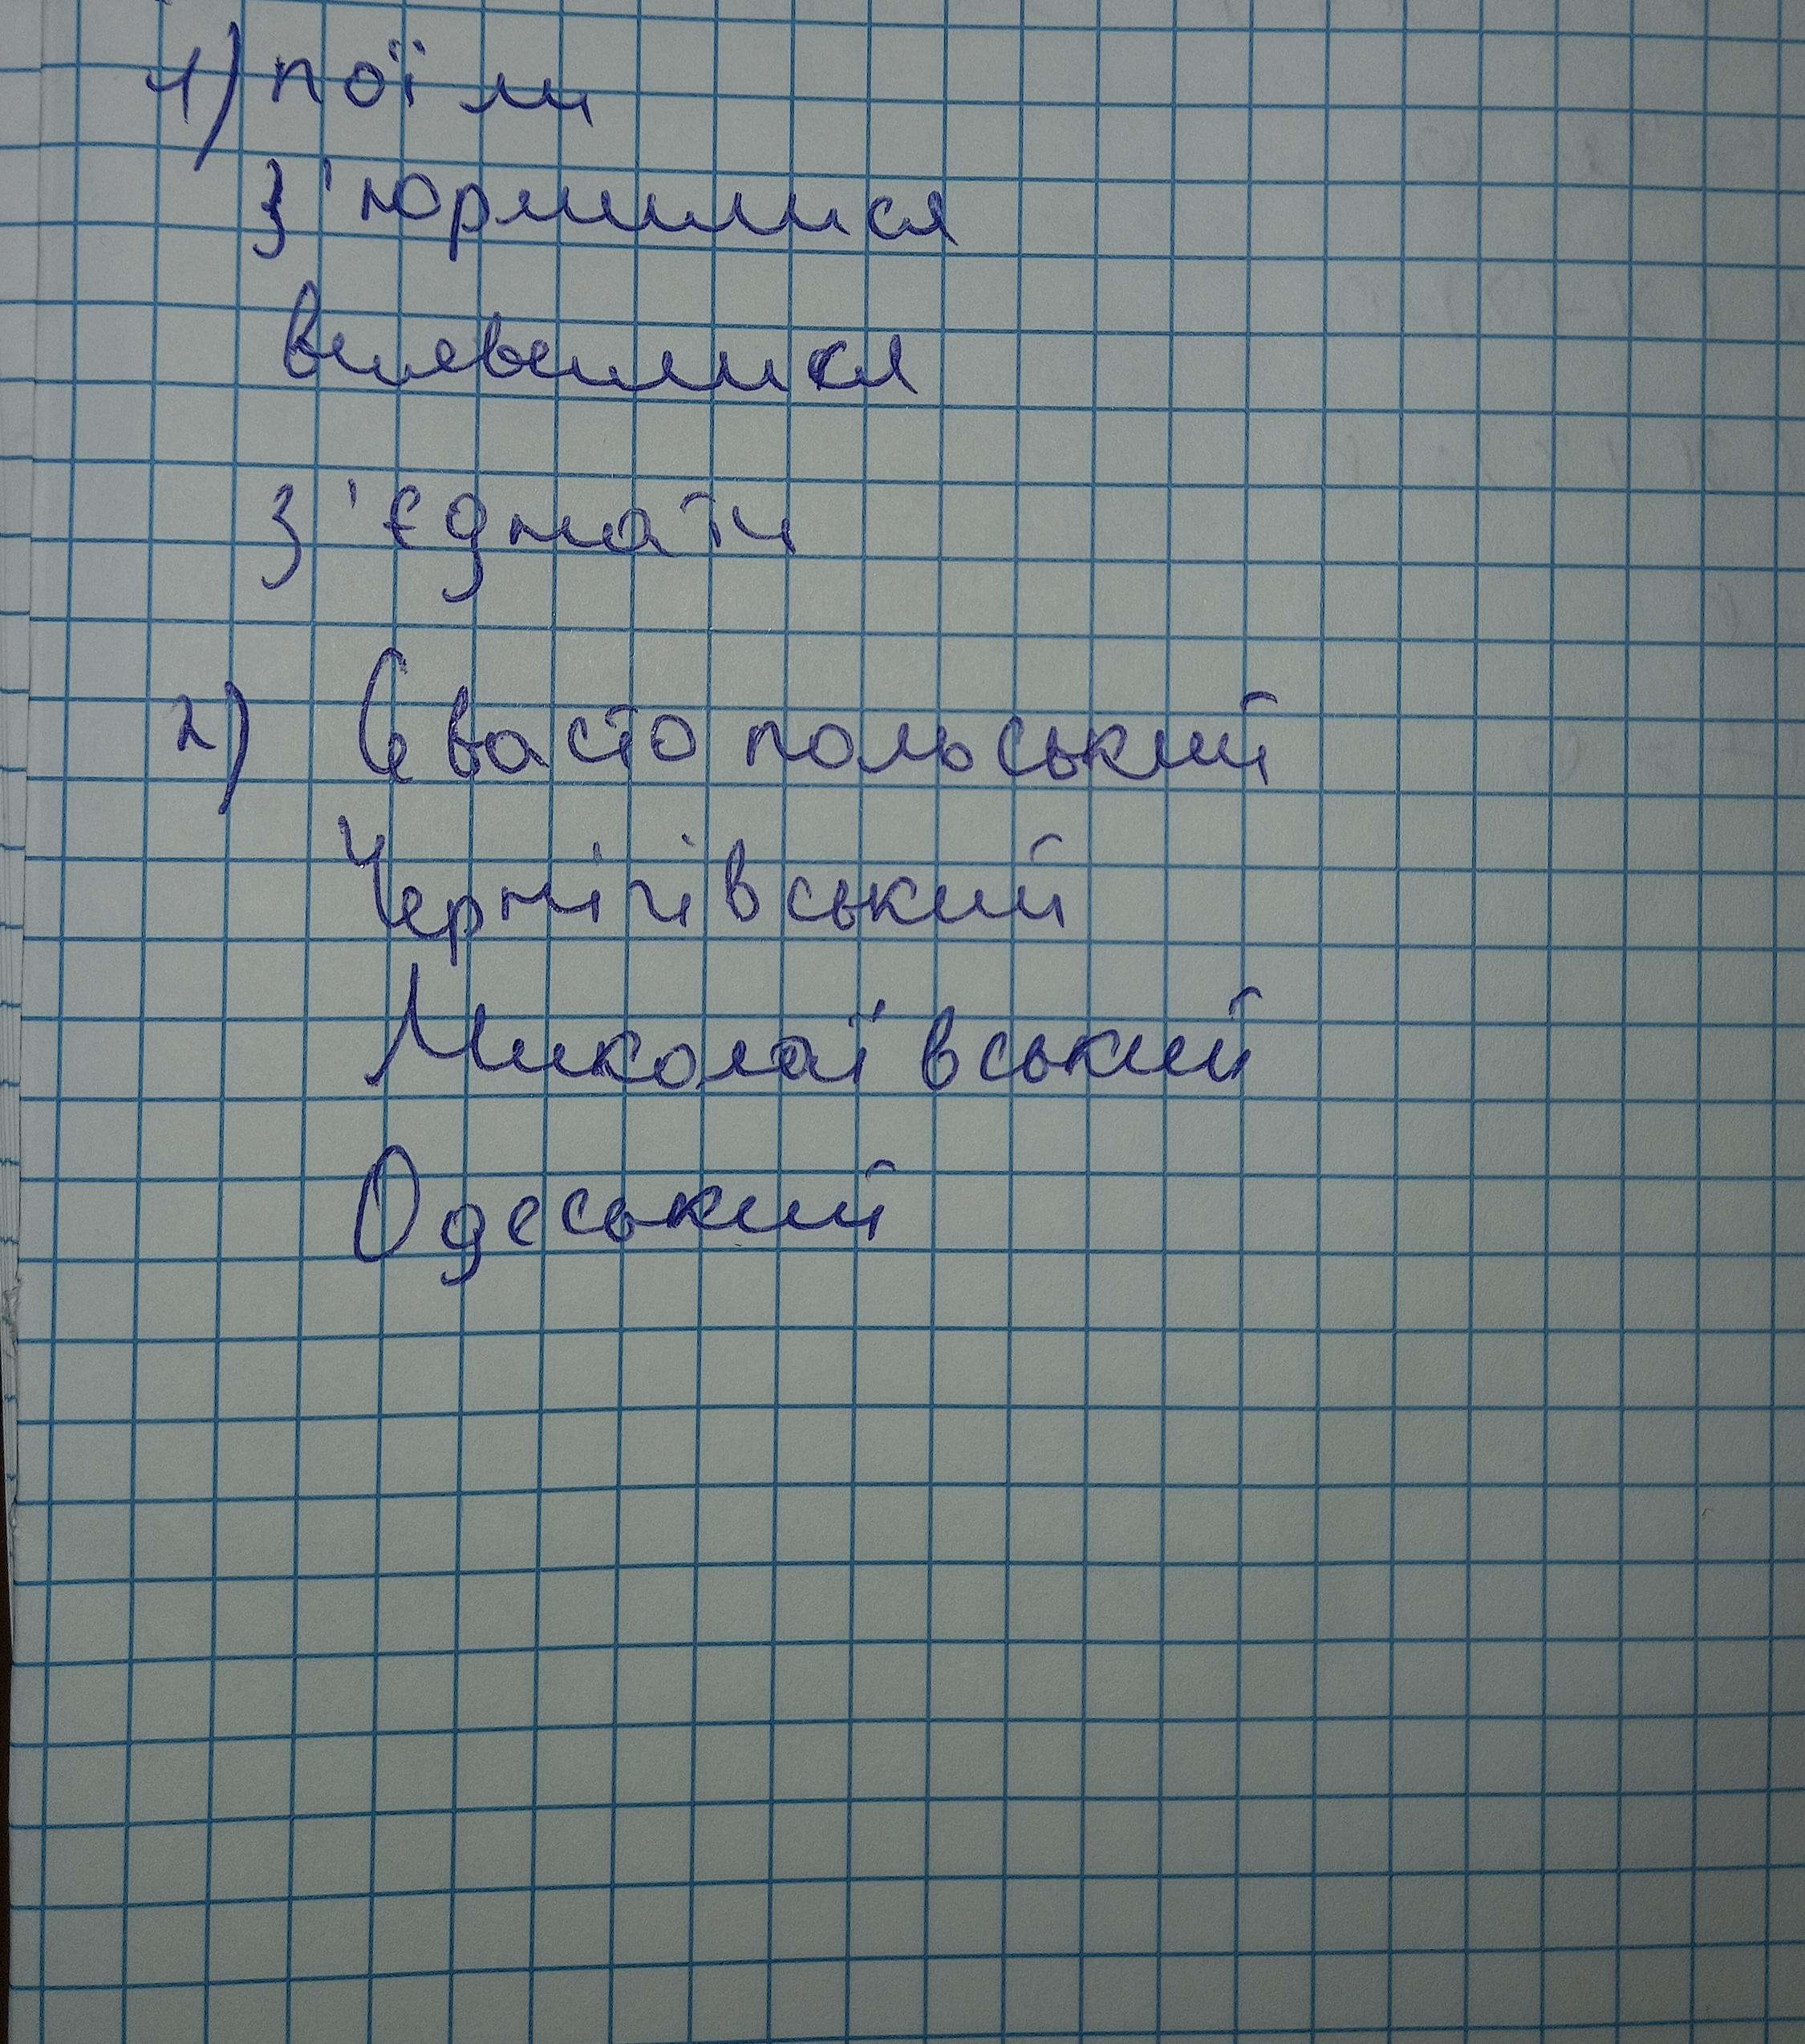 1) поїли
з'юрмилися
виявилися
з'єднати
2) Севастопольський
Чернігівський
Миколаївський
Одеський